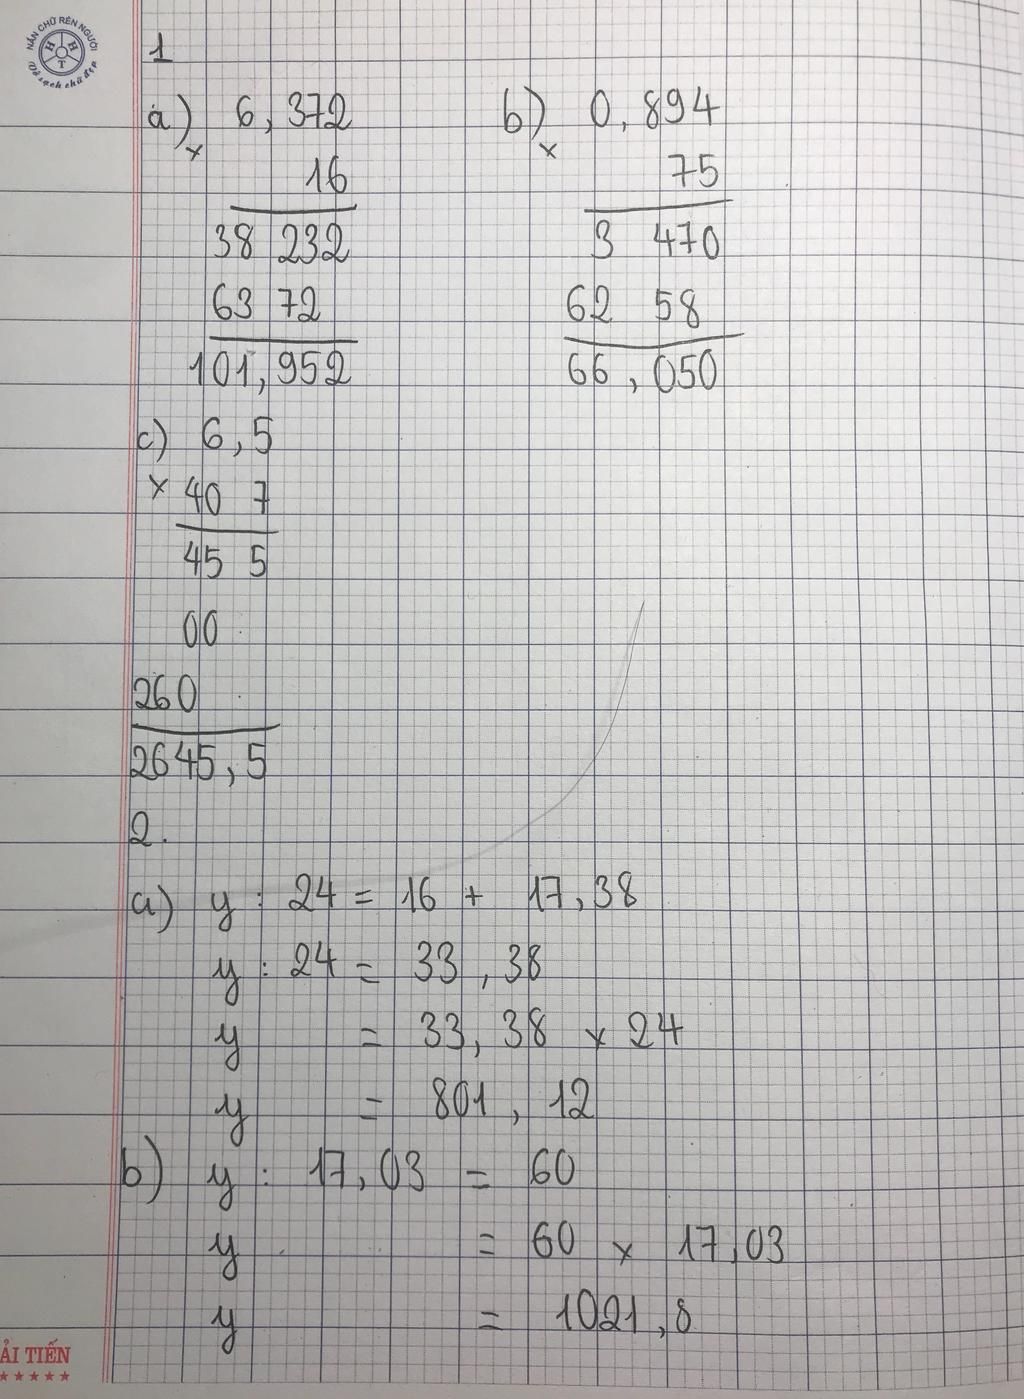 NẮN CHỮ RÈN NGƯỜI
H H T
Vở sạch chữ đẹp
1
a) 6,372
×
16
38 232
63 72
101,952
b) 0,894
×
75
3 470
62 58
66,050
c) 6,5
× 40 7
45 5
00
260
2645,5
2.
a) y : 24 = 16 + 17,38
y : 24 = 33,38
y = 33,38 × 24
y = 801,12
b) y : 17,03 = 60
y = 60 × 17,03
y = 1021,8
ẢI TIẾN
★★★★★